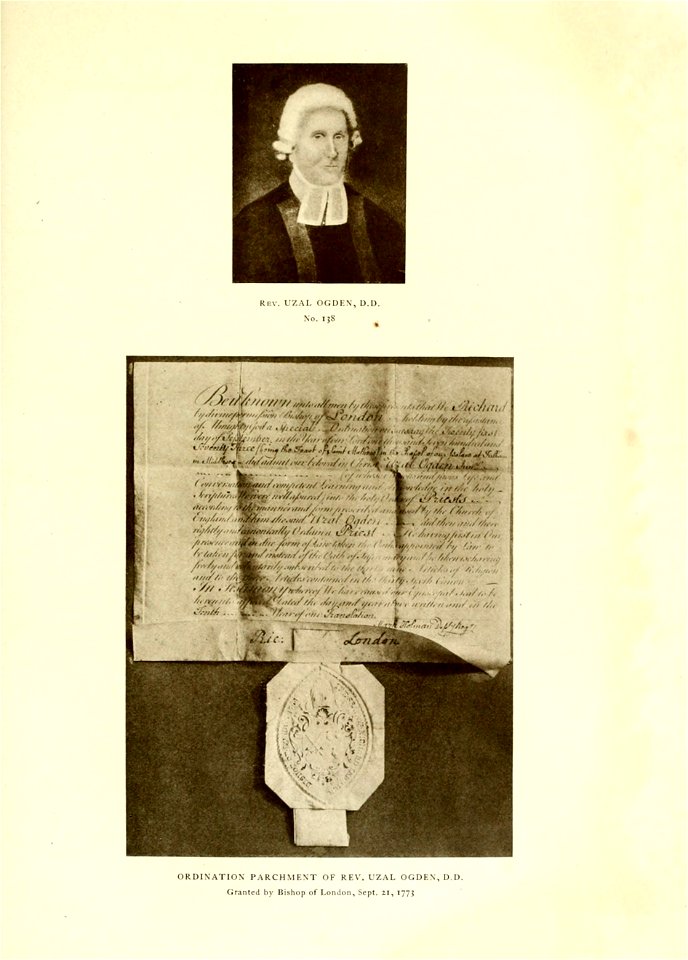 Rev. UZAL OGDEN, D.D.
No. 138
Be it Known unto all men by these presents that We Richard
by divine permission Bishop of London holding by the assistance
of Almighty God a Special Ordination on Tuesday the Twenty first
day of September in the Year of our Lord One thousand seven hundred and
Seventy Three being the Feast of Saint Matthew in the Chapel of our Palace at Fulham
in Middlesex did admit our beloved in Christ Uzal Ogden
of whose virtuous and pious Life and
Conversation and competent Learning and Knowledge in the holy
Scriptures We were well assured into the holy Order of Priests
according to the manner and form prescribed and used by the Church of
England and him the said Uzal Ogden did then and there
rightly and canonically Ordain Priest He having first in Our
presence and in due form of Law taken the Oaths appointed by Law to
be taken for and instead of the Oath of Supremacy and he likewise having
freely and voluntarily subscribed to the thirty nine Articles of Religion
and to the three Articles contained in the thirty Sixth Canon
In Testimony whereof We have caused our Episcopal Seal to be
hereunto affixed Dated the day and year above written and in the
Tenth Year of our Translation
Mark Holman
Ric: London
ORDINATION PARCHMENT OF REV. UZAL OGDEN, D.D.
Granted by Bishop of London, Sept. 21, 1773